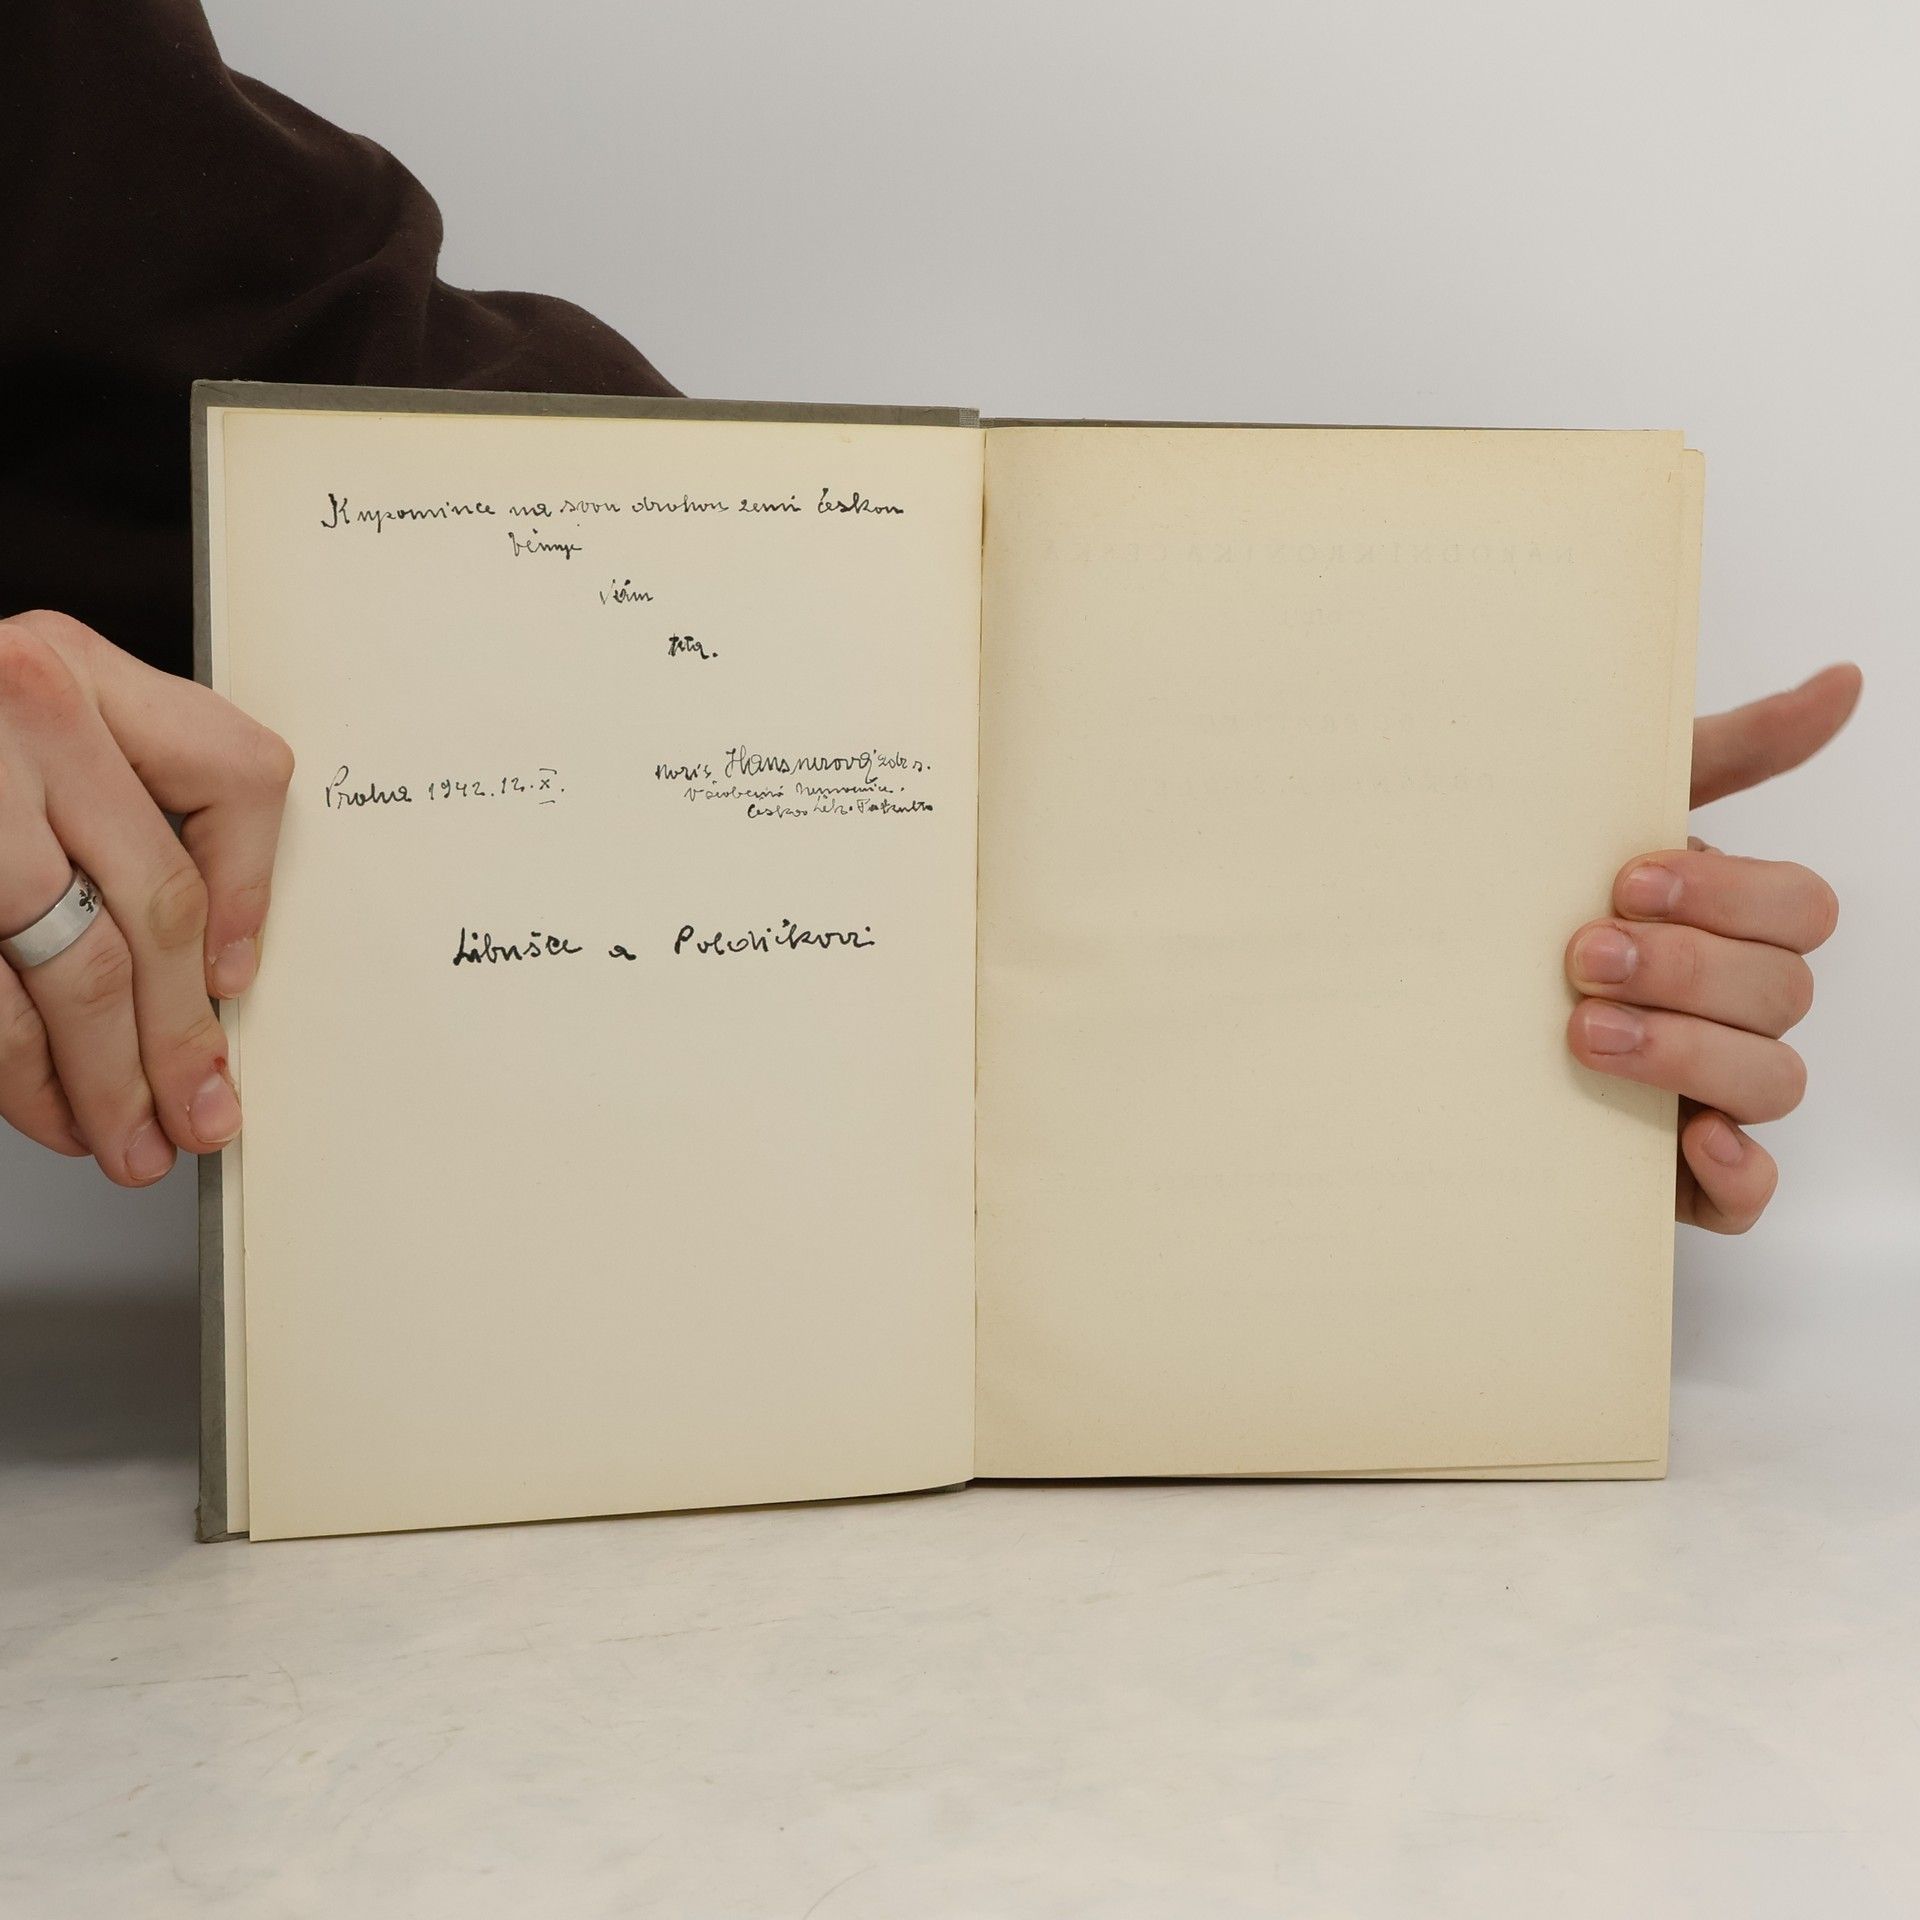 K upomínce na svou drahou zemi českou
věnuje
Vám
teta.
Praha 1942. 12. X.
Hausnerová zdr. s.
Všeobecná Nemocnice.
česká Lék. Fakulta
Libušce a Poldíkovi
NÁRODNÍ KRONIKA ČESKÁ